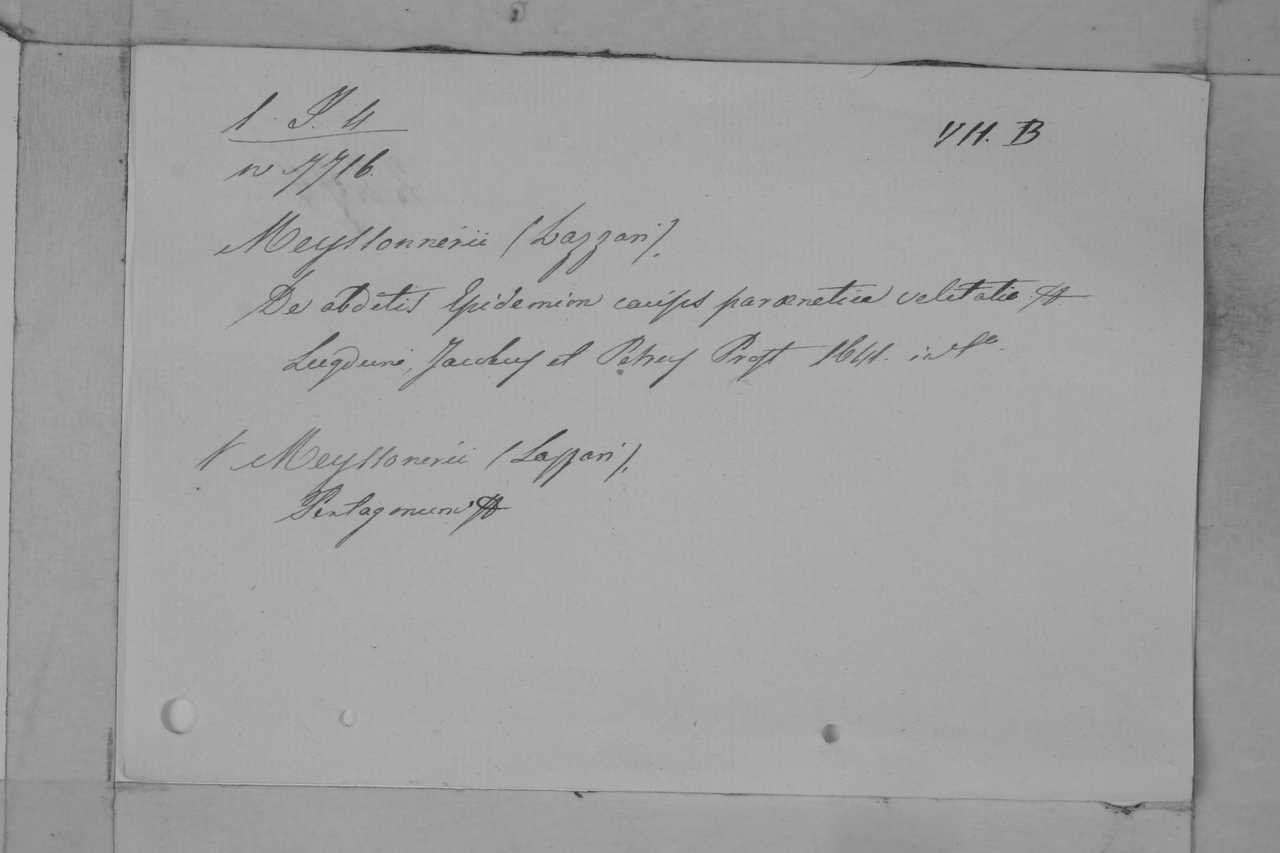 1. S. 4
VH. B
n 7716.
Meyssonnerii (Lazzari).
De abditis Epidemion causis parænetica velitatio &
Lugduni, Jacobus et Petrus Prost 1641. in
V Meyssonerii (Lazzari).
Pentagonum &